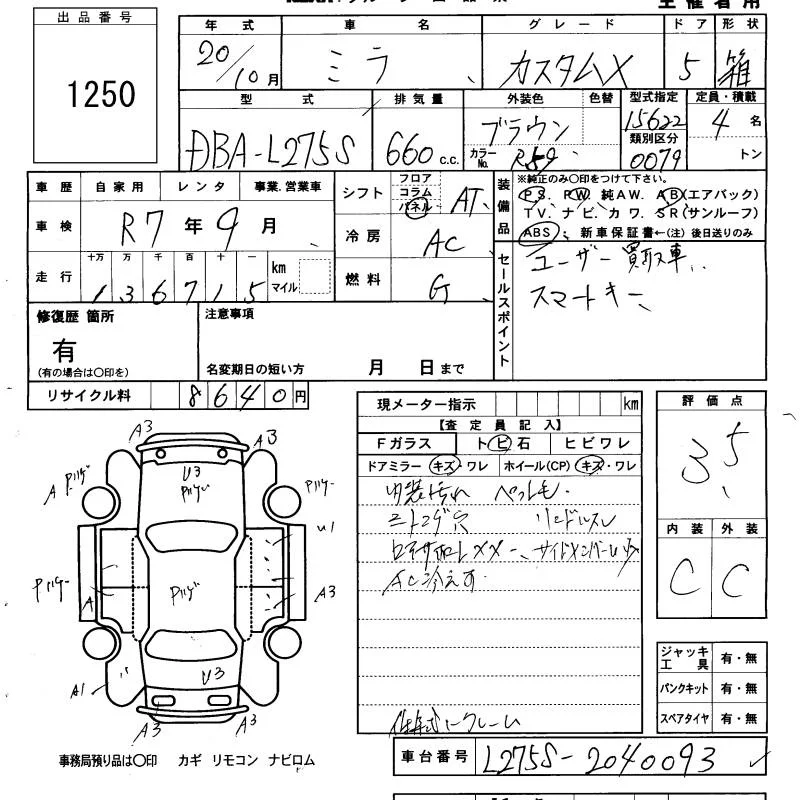 主催者用
出品番号
1250
年式 車名 グレード ドア 形状
20/10月 ミラ カスタムX 5 箱
型式 排気量 外装色 色替 型式指定 定員・積載
DBA-L275S 660 c.c. ブラウン 15622 4名
カラーNo. R59 類別区分 0079 トン
車歴 自家用 レンタ 事業.営業車
車検 R7年9月
走行 十万 万 千 百 十 一 km マイル
1 3 6 7 1 5
シフト フロア コラム パネル AT
冷房 AC
燃料 G
装備品 ※純正のみ〇印をつけて下さい。
P S. P W. 純AW. A B(エアバック)
T V. ナビ. カワ. S R(サンルーフ)
ABS 新車保証書←(注) 後日送りのみ
セールスポイント
ユーザー買取車
スマートキー
修復歴 箇所
有
(有の場合は〇印を)
注意事項
名変期日の短い方 月 日まで
リサイクル料 8 6 4 0 円
現メーター指示 km
【査定員記入】
Fガラス トビ石 ヒビワレ
ドアミラー キズ・ワレ ホイール(CP) キズ・ワレ
内装汚れ ペット毛
ニトコゲ穴
AC冷えず
評価点
3.5
内装 外装
C C
ジャッキ工具 有・無
パンクキット 有・無
スペアタイヤ 有・無
A3 A3
U3
A
U1
A A3
U3
A1
A3 A3
事務局預り品は〇印 カギ リモコン ナビロム
車台番号 L275S-2040093